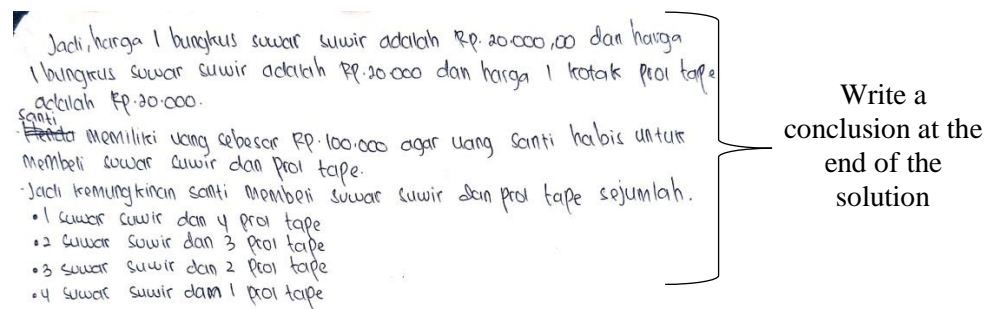 Jadi, harga 1 bungkus suwar suwir adalah Rp. 20.000,00 dan harga
1 bungkus suwar suwir adalah Rp. 20.000 dan harga 1 kotak prol tape
adalah Rp. 20.000.
Santi
memiliki uang sebesar Rp. 100.000 agar uang santi habis untuk
membeli suwar suwir dan prol tape.
- Jadi kemungkinan santi membeli suwar suwir dan prol tape sejumlah.
• 1 suwar suwir dan 4 prol tape
• 2 suwar suwir dan 3 prol tape
• 3 suwar suwir dan 2 prol tape
• 4 suwar suwir dam 1 prol tape
Write a
conclusion at the
end of the
solution